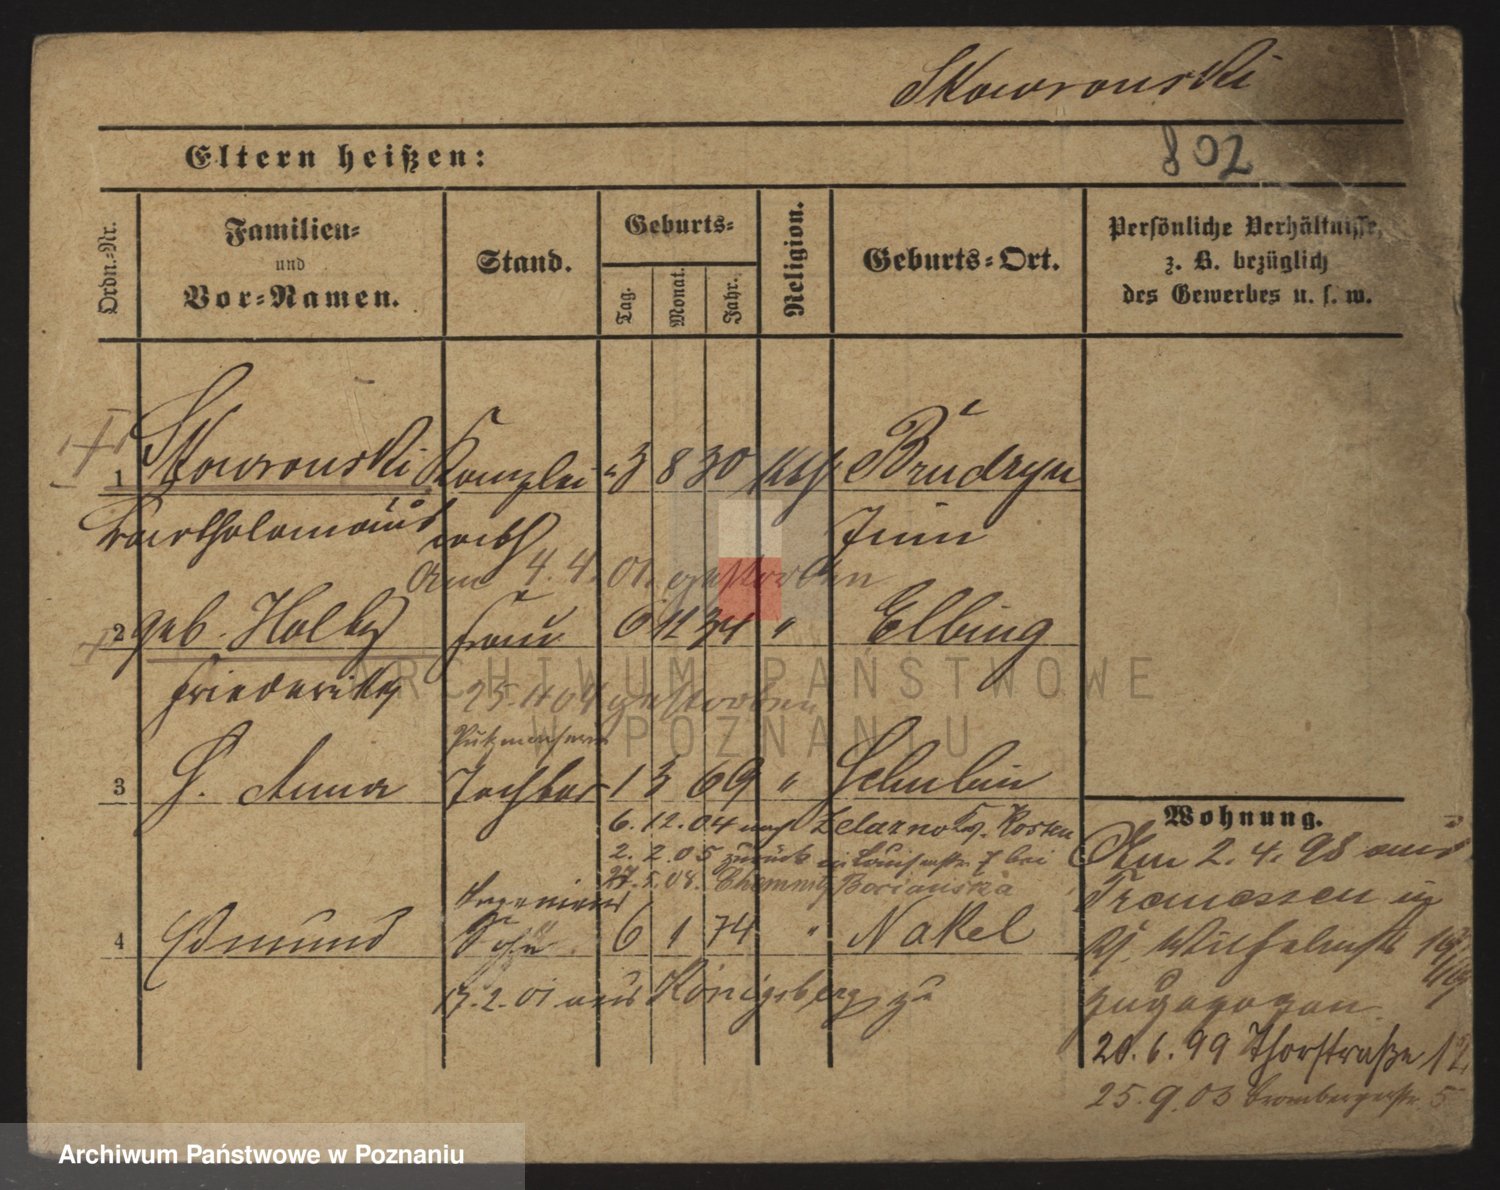 Skowronski
802
Eltern heißen:
Ordn.-Nr.
Familien-
und
Vor-Namen.
Stand.
Geburts-
Tag.
Monat.
Jahr.
Religion.
Geburts-Ort.
Persönliche Verhältnisse,
z. B. bezüglich
des Gewerbes u. s. w.
1 Skowronski Kanzlei- 3 8 30 kth Brudzyn
Bartholomäus
am 4.4.01. gestorben
2 geb. Holtz Frau 6 12 34 " Elbing
Friederike 25.4.04 gestorben
3 S. Anna Tochter 1 3 69 " Schubin
6.12.04 nach Kosten
2.2.05 zurück bei
27.5.08. Chemnitz Borianska
Ingenieur
4 Edmund Sohn 6 1 74 " Nakel
17.2.01 aus Königsberg zu
Wohnung.
Am 2.4.98 aus
Tremessen
zugezogen.
20.6.99 Thorstraße 12
25.9.03 Brombergerstr. 5
ARCHIWUM PAŃSTWOWE
W POZNANIU
Archiwum Państwowe w Poznaniu